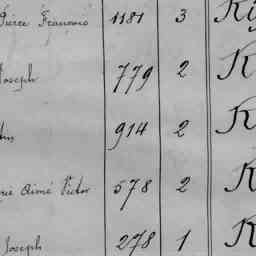 Pierre François 1181 3
Joseph 779 2 K
914 2 K
Aimé Victor 578 2 K
Joseph 278 1 K